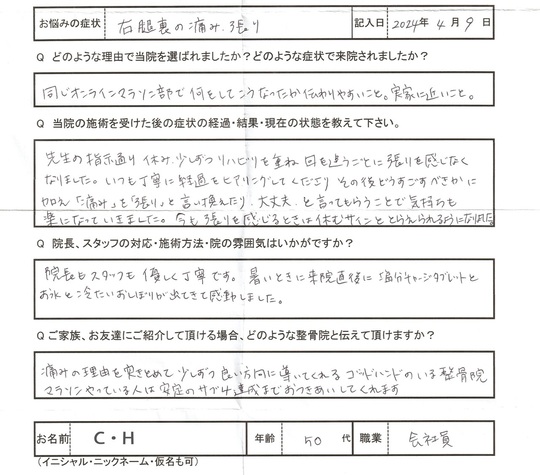 お悩みの症状 右腿裏の痛み、張り 記入日 2024年 4月 9日
Q どのような理由で当院を選ばれましたか？どのような症状で来院されましたか？
同じオンラインマラソン部で何をしてこうなったか伝わりやすいこと。実家に近いこと。
Q 当院の施術を受けた後の症状の経過・結果・現在の状態を教えて下さい。
先生の指示通り 休み、少しずつリハビリを重ね 回を追うごとに張りを感じなく
なりました。いつも丁寧に経過をヒアリングしてくださり その後どうすごすべきかに
加え「痛み」を「張り」と言い換えたり、大丈夫、と言ってもらうことで気持ちも
楽になっていきました。今も張りを感じるときは休むサインととらえられるようになりました。
Q 院長、スタッフの対応・施術方法・院の雰囲気はいかがですか？
院長もスタッフも 優しく丁寧です。暑いときに来院直後に 塩分チャージタブレットと
お水と冷たいおしぼりが出てきて感動しました。
Q ご家族、お友達にご紹介して頂ける場合、どのような整骨院と伝えて頂けますか？
痛みの理由を突きとめて 少しずつ 良い方向に導いてくれる ゴッドハンドのいる整骨院
マラソンやっている人は 安定のサブ4達成までおつきあいしてくれます
お名前 C・H 年齢 50 代 職業 会社員
(イニシャル・ニックネーム・仮名も可)